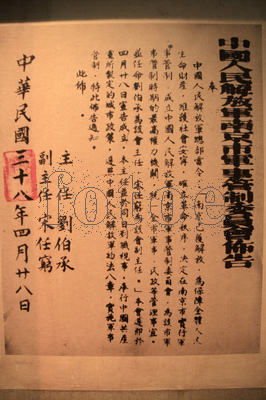 中國人民解放軍南京市軍事管制委員會佈告
奉
中國人民解放軍總部電令：「南京已獲解放，為保障全體人民
生命財產，維護社會安寧，確立革命秩序，決定在南京市實行軍
事管制，成立中國人民解放軍南京市軍事管制委員會，為該市軍
事管制時期的最高權力機關，統一全市軍事、民政等管理事宜。
並任命劉伯承為該會主任，宋任窮為該會副主任。」本會遵即於
四月廿八日宣告成立。本主任等並於同日到職視事，奉行中國共產
黨所製定的城市政策，遵照中國人民解放軍約法八章，實施軍事
管制，特此佈告週知。
此佈。
主任 劉伯承
副主任 宋任窮
中華民國三十八年四月廿八日
fotoe